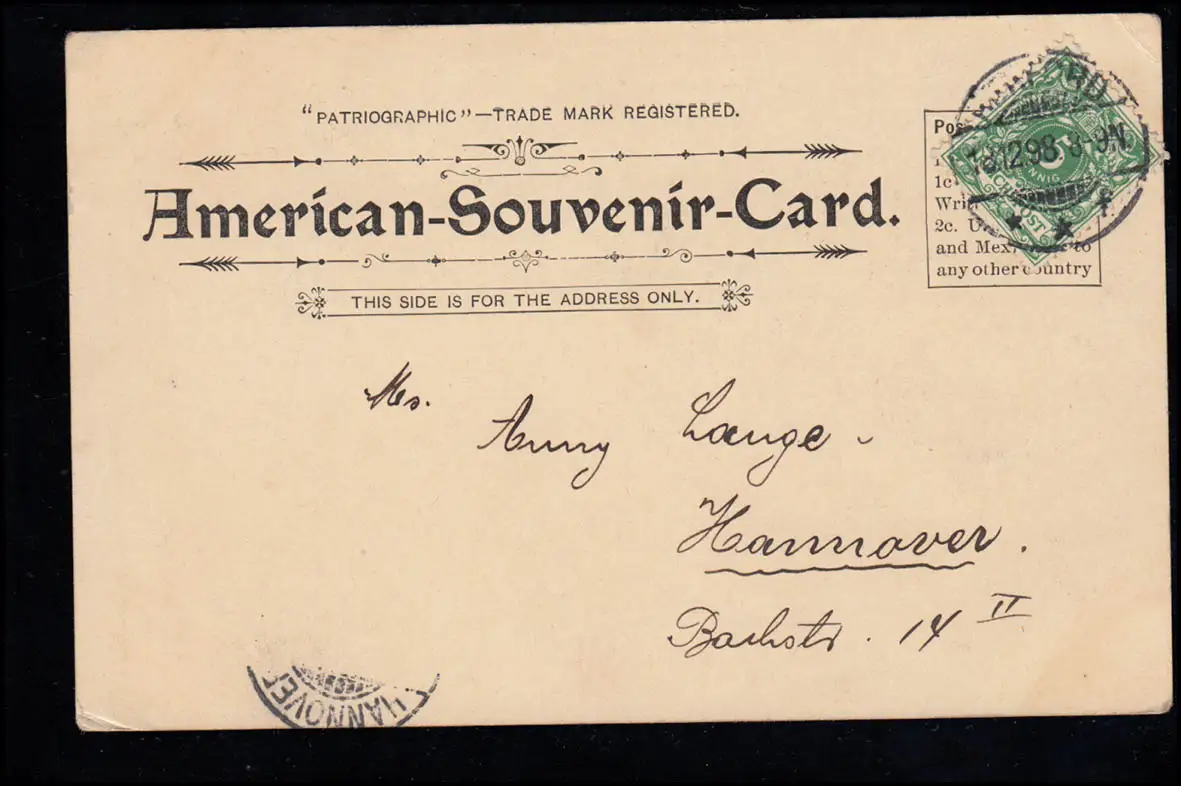 "PATRIOGRAPHIC"—TRADE MARK REGISTERED.
American-Souvenir-Card.
THIS SIDE IS FOR THE ADDRESS ONLY.
1c
2c.
and Mex.
to
any other country
18.12.98 8-9N.
PFENNIG
Ms.
Anny Lange
Hannover.
Bachstr. 14 II
HANNOVER